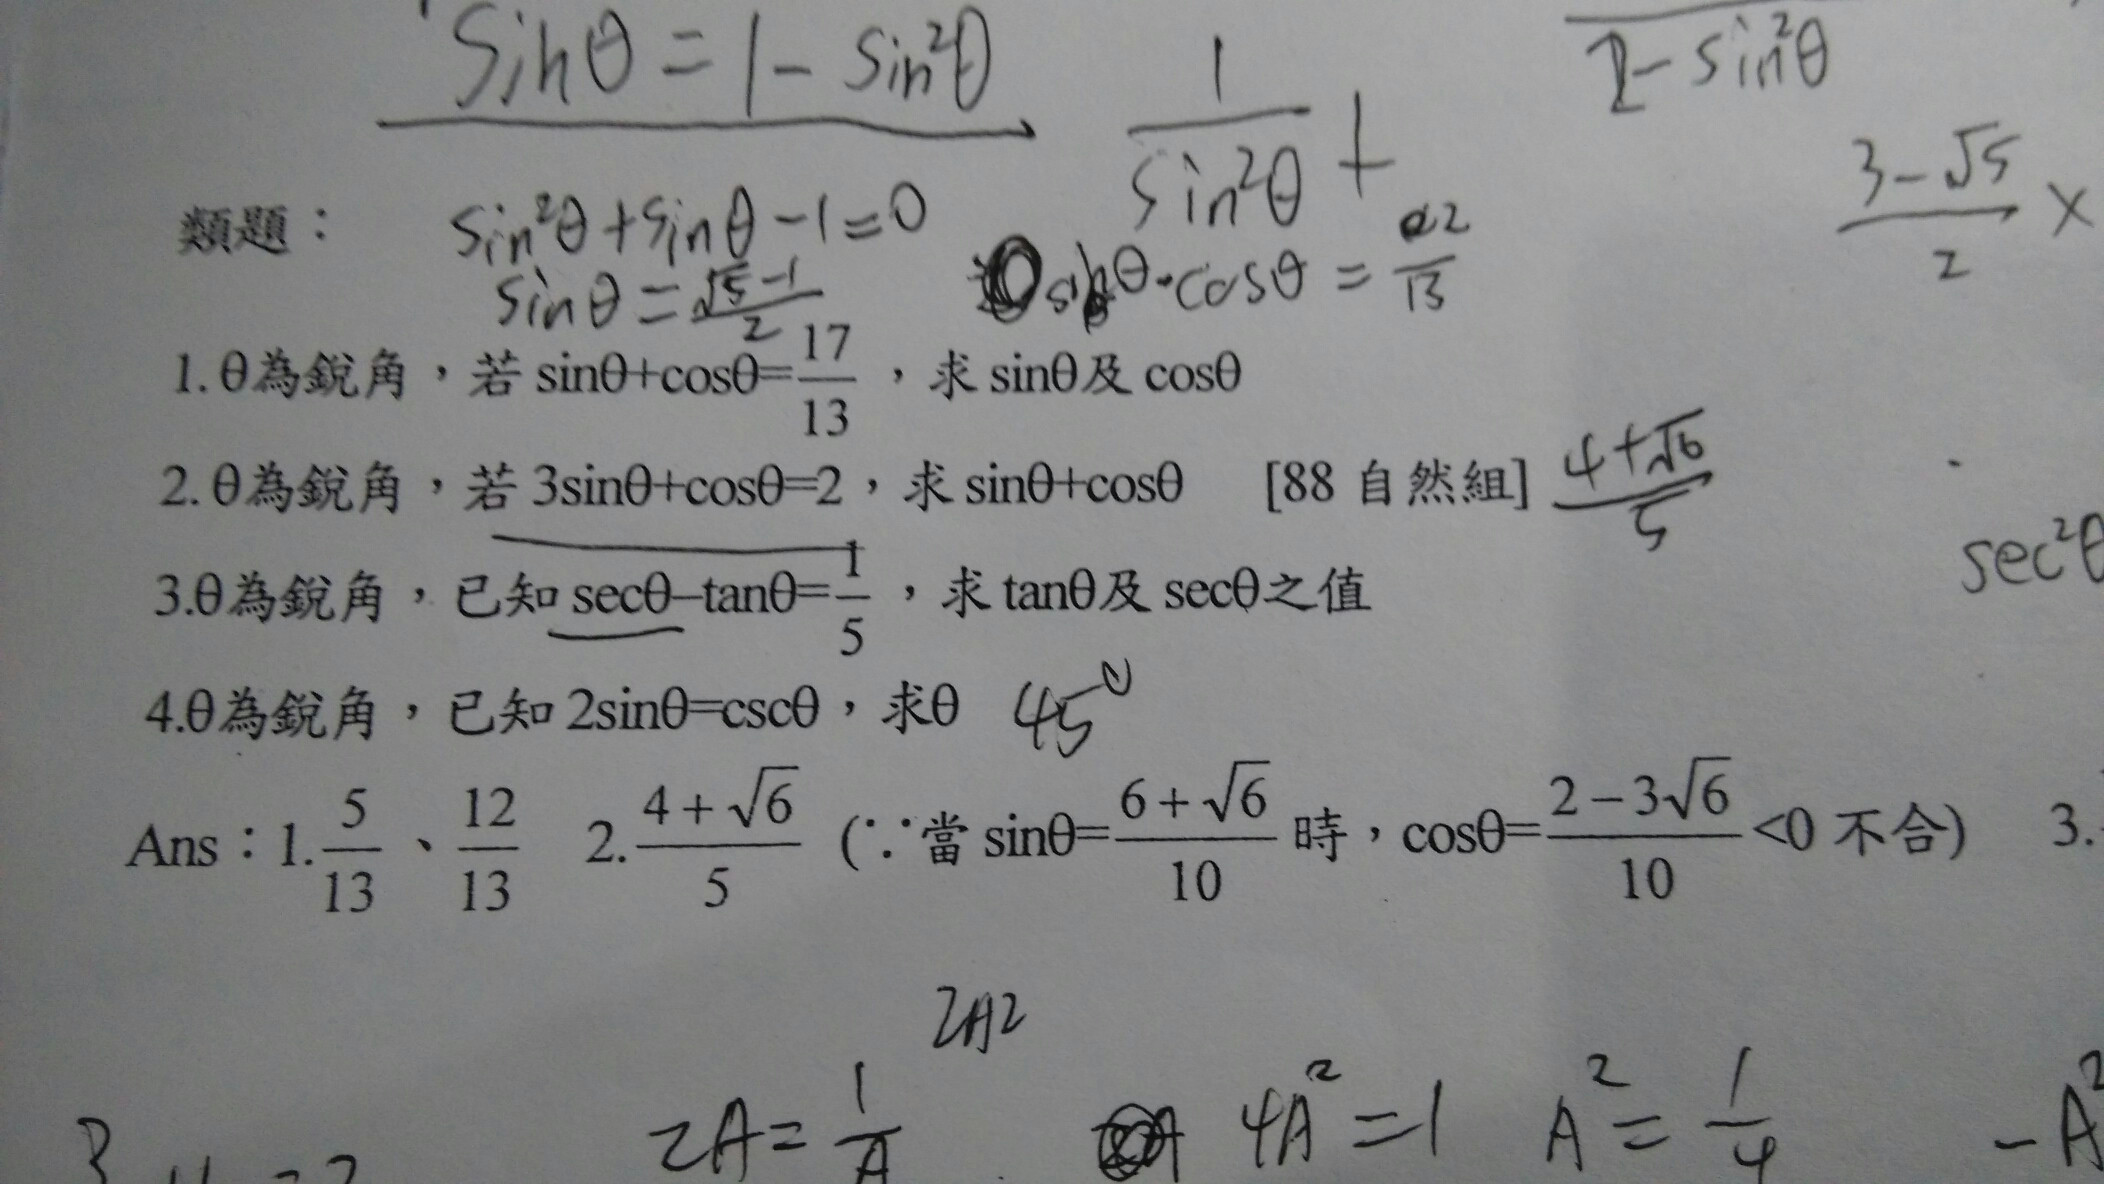 sinθ = 1 - sin²θ
2 - sin²θ
1/sin²θ +
(3-√5)/2 ×
類題： sin²θ + sinθ - 1 = 0
sinθ = (√5-1)/2
sinθ·cosθ = /13
1. θ為銳角，若 sinθ+cosθ=17/13，求 sinθ及 cosθ
2. θ為銳角，若 3sinθ+cosθ=2，求 sinθ+cosθ [88 自然組] (4+√6)/5
sec²θ
3.θ為銳角，已知 secθ–tanθ=1/5，求 tanθ及 secθ之值
4.θ為銳角，已知 2sinθ=cscθ，求θ 45°
Ans：1. 5/13、12/13 2. (4+√6)/5 (∵當 sinθ=(6+√6)/10 時，cosθ=(2-3√6)/10<0 不合) 3.
2A2
2A = 1/A 4A² = 1 A² = 1/4 -A²